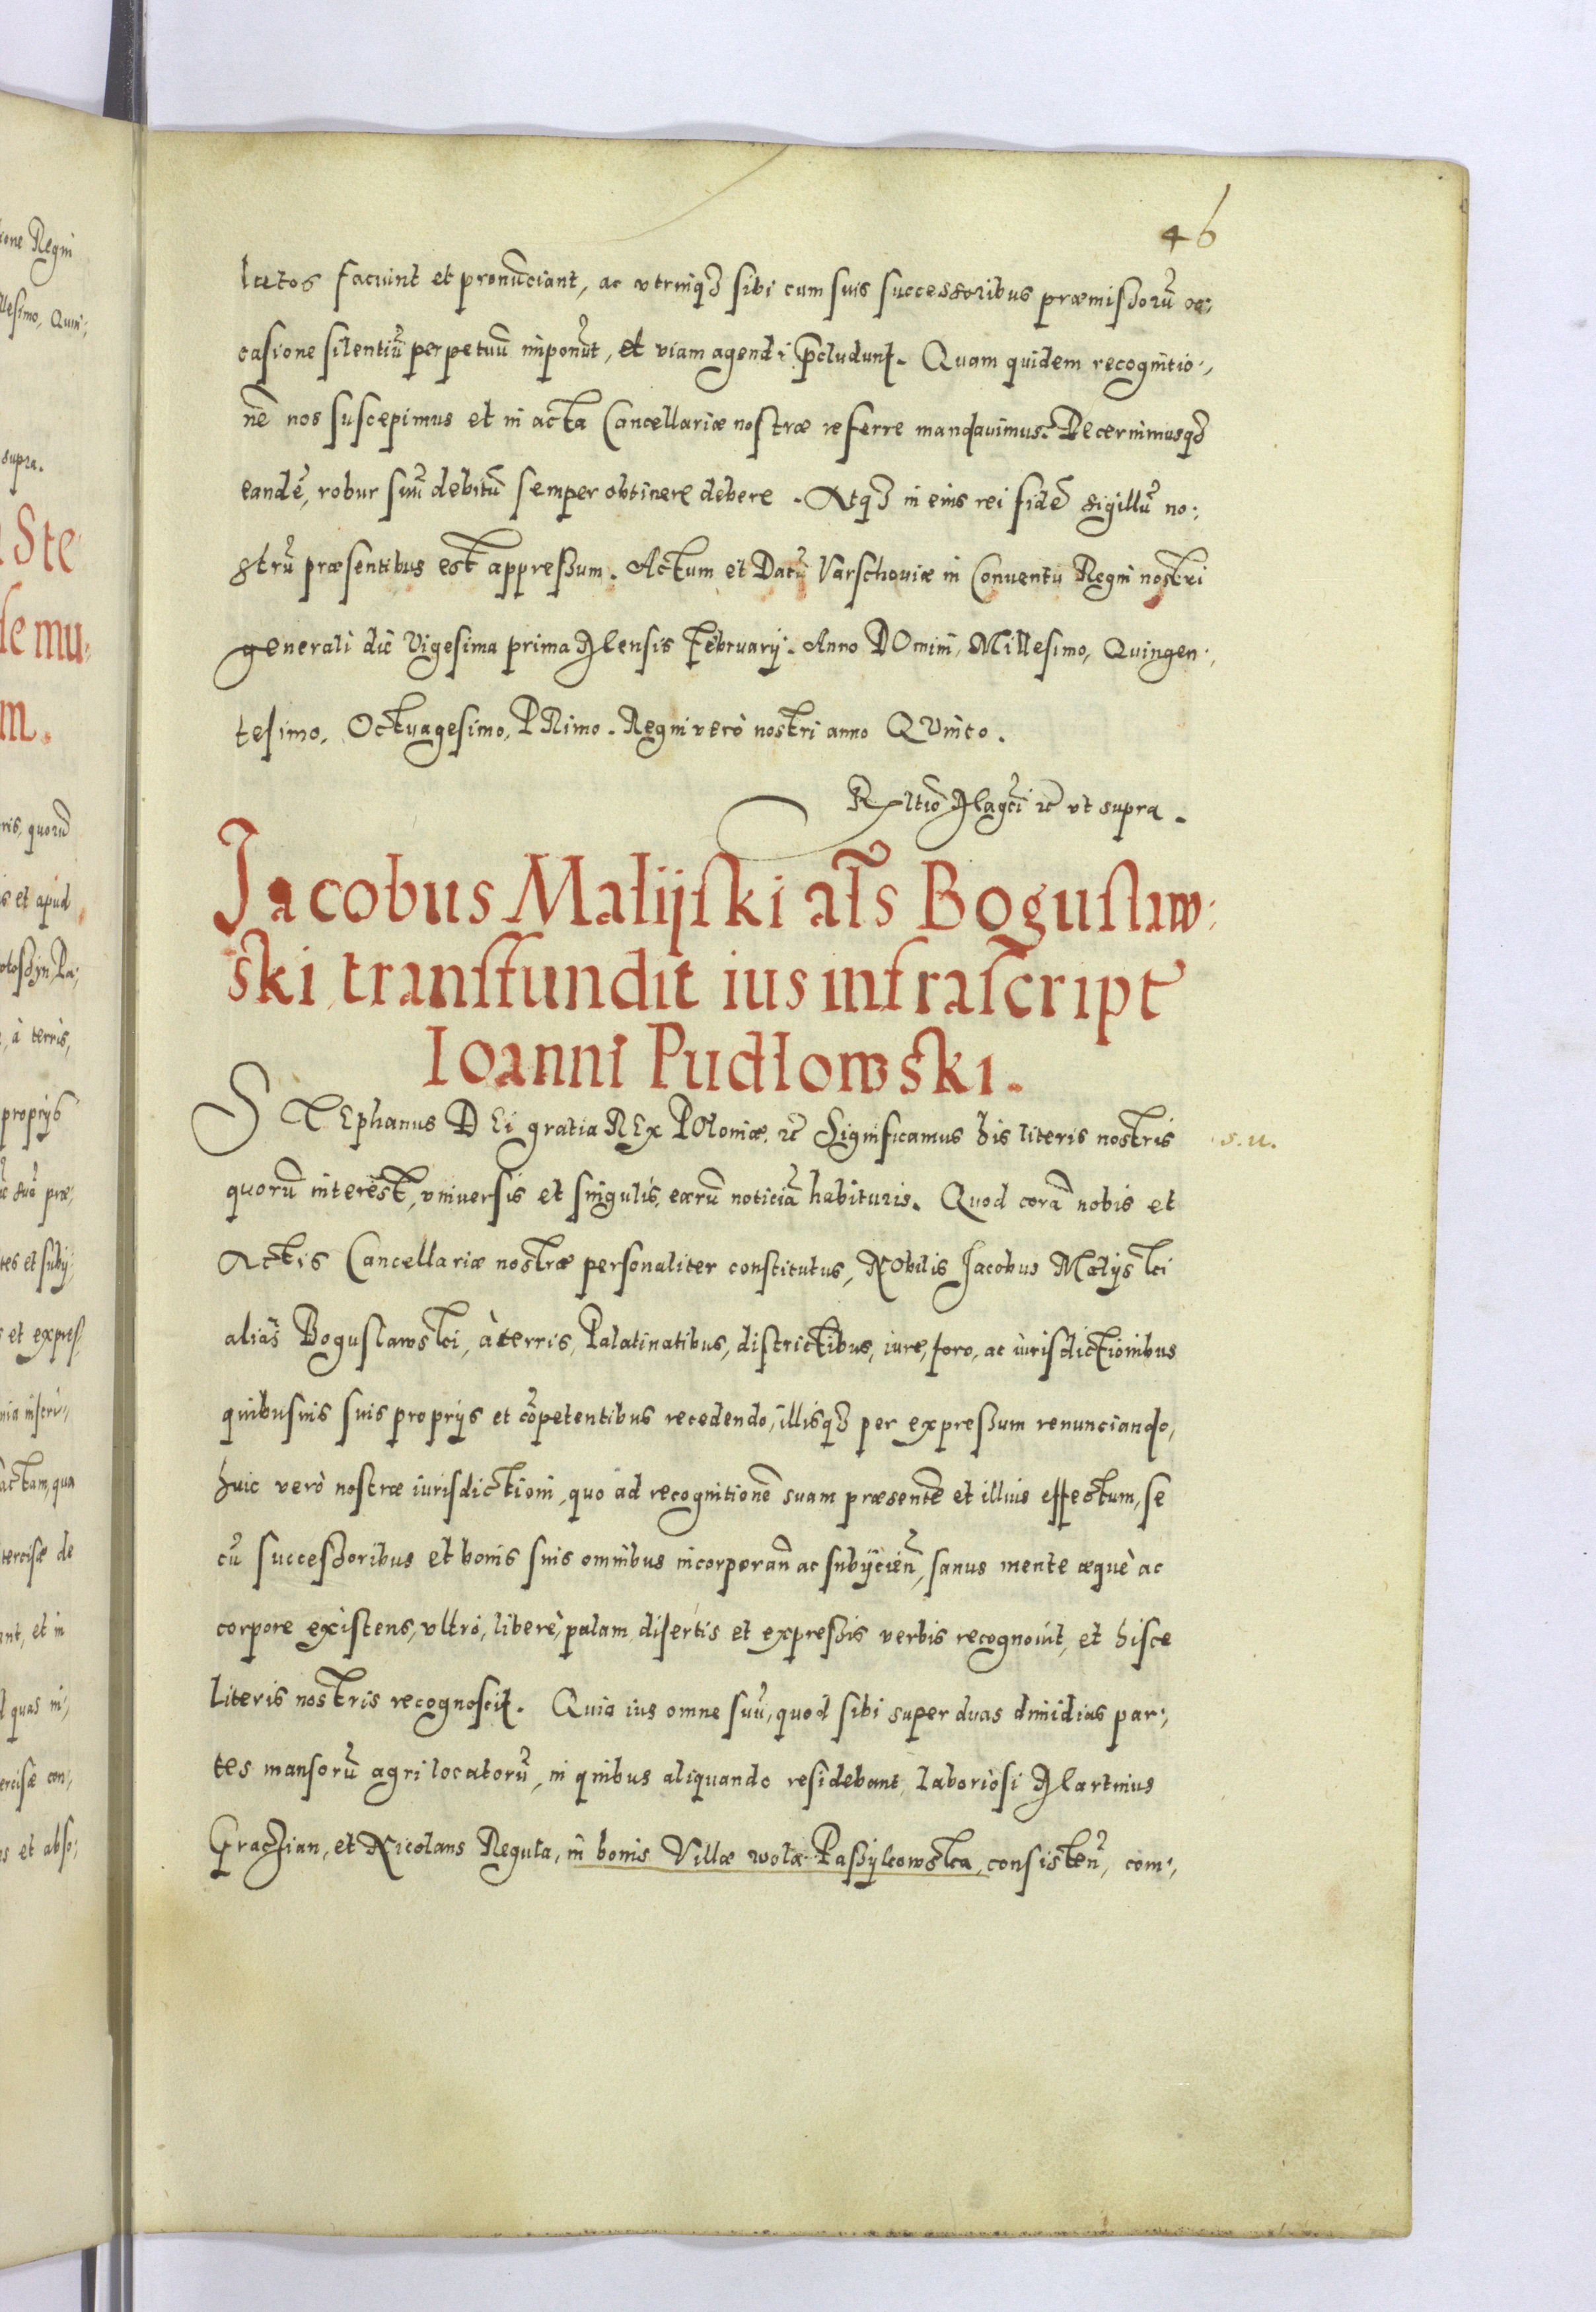 46
lutos faciunt et pronũciant, ac vtrinqȝ sibi cum suis successoribus præmissorũ oc:
casione silentiũ perpetuũ imponũt, et viam agendi p̄cludunt. Quam quidem recognitio:
nẽ nos suscepimus et in acta Cancellariæ nostræ referre mandauimus. Decernimusqȝ
eandẽ, robur suũ debitũ semper obtinere debere. Atqȝ in eius rei fidẽ sigillũ no:
strũ præsentibus est appressum. Actum et Datũ Varschouiæ in Conuentu Regni nostri
generali die Vigesima prima Mensis Februarij. Anno DOmini, Millesimo, Quingen:
tesimo, Octuagesimo, PRimo. Regni verò nostri anno QVinto.
Rltio Magci ꝛc̃ vt supra.
Jacobus Małijski als̃ Bogusław:
ski transfundit ius infrascript
Ioanni Pudłowski.
STEphanus DEi gratia REx POloniæ, ꝛc̃ Significamus his literis nostris
s. u.
quorũ interest, vniversis et singulis, earũ noticiã habituris. Quod corã nobis et
Actis Cancellariæ nostræ personaliter constitutus, NObilis Jacobus Małijski
aliàs Bogusławski, à terris, Palatinatibus, districtibus, iure, foro, ac iurisdictionibus
quibusuis suis proprijs et cõpetentibus recedendo, illisqȝ per expressum renunciando,
huic verò nostræ iurisdictioni, quo ad recognitionẽ suam præsentẽ et illius effectum, se
cũ successoribus et bonis suis omnibus incorporañ ac subijcieñ, sanus mente æquè ac
corpore existens, vltrò, liberè, palam, disertis et expressis verbis recognouit, et hisce
literis nostris recognoscit. Quia ius omne suũ, quod sibi super duas dimidias par:
tes mansorũ agri locatorũ, in quibus aliquando residebant laboriosi Martinus
Grachian, et Nicolaus Reguła, in bonis Villæ wola Passijkowska, consisteñ, com: